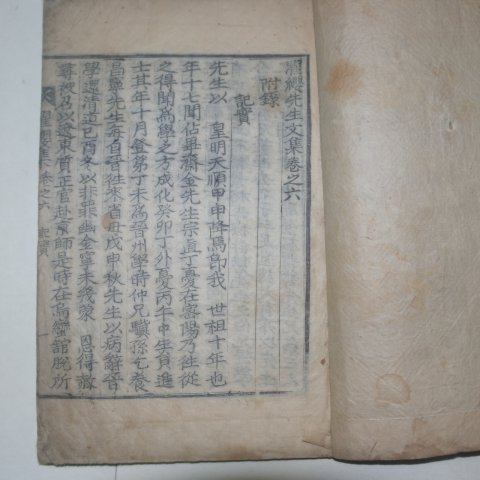 濯纓先生文集卷之六
附錄
記實
先生以 皇明天順甲申降焉卽我 世祖十年也
年十七聞佔畢齋金先生宗直丁憂在密陽乃往從
之得聞爲學之方成化癸卯丁外憂丙午中生員進
士其年十月登第丁未爲晉州學時仲兄驥孫乞養
昌寧先生亦自晉往來省母戊申秋先生以病辭晉
學還淸道己酉冬以非罪幽金寧未幾蒙 恩得讞
尋被召以遼東質正官赴京師是時在烏蠻館脫所
濯纓集 卷之六 記實 一